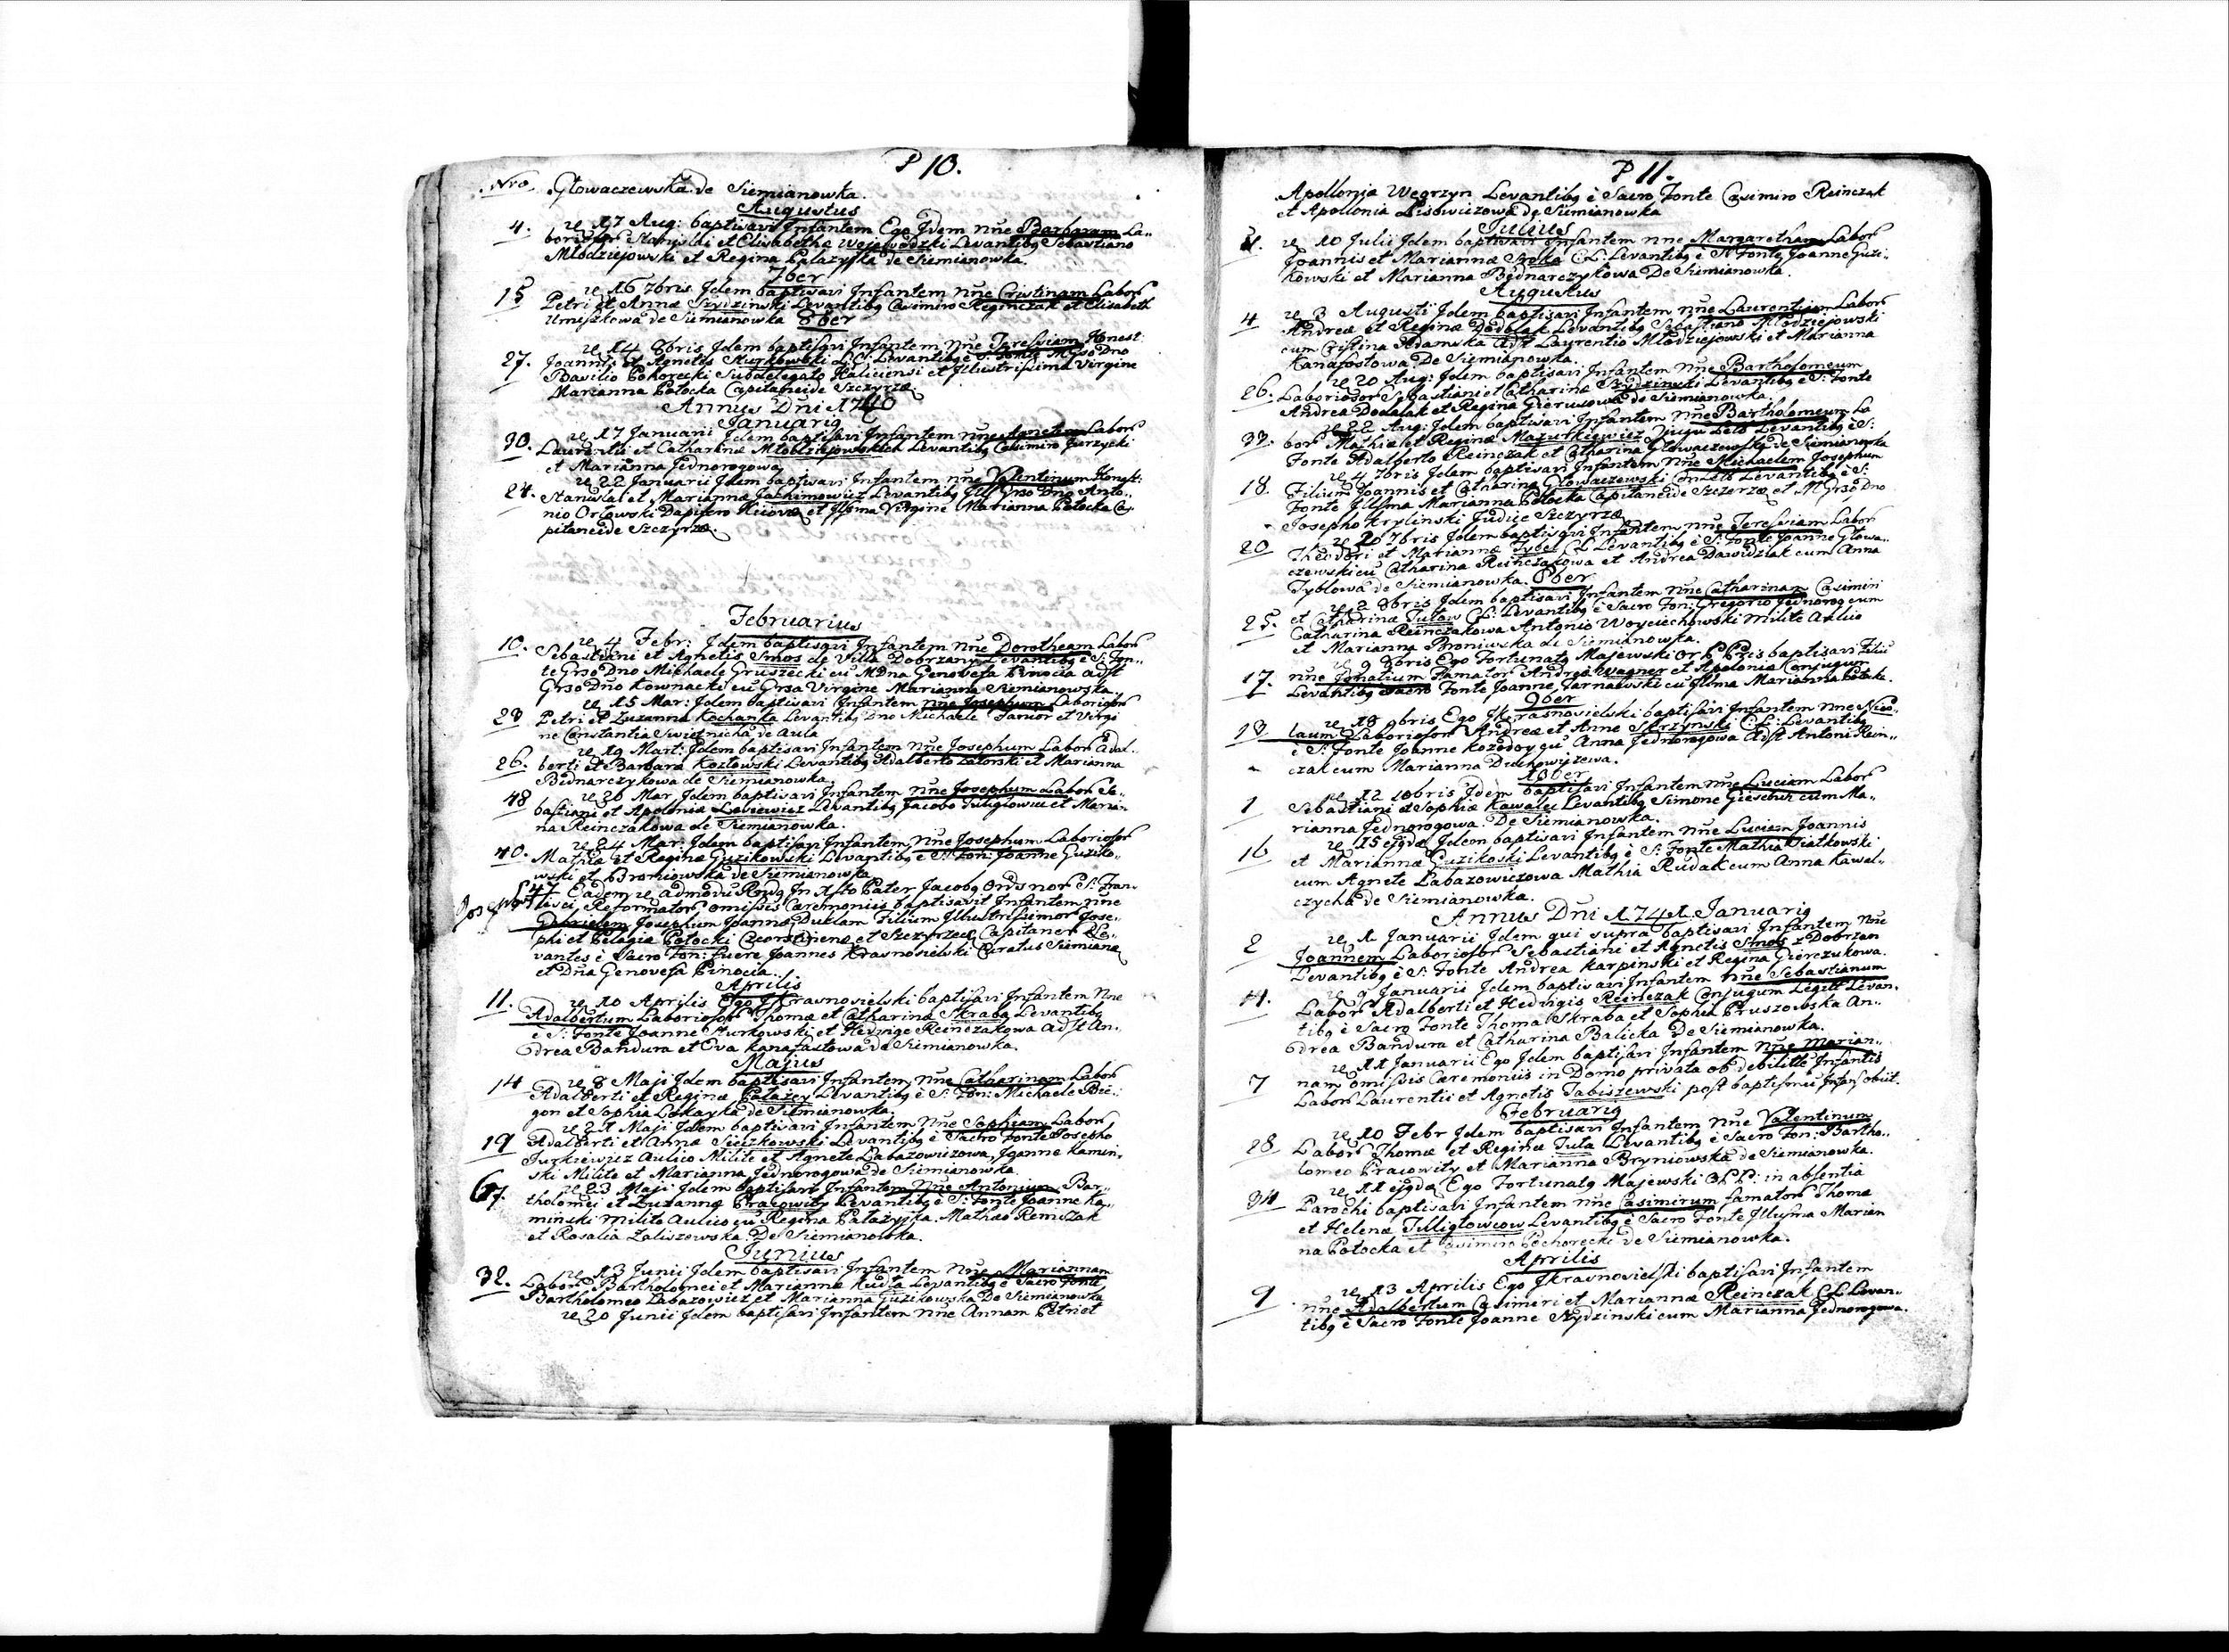 P 10.
Nro. Głowaczewska de Siemianowka.
Augustus
4. 17 Aug: baptisavi Infantem Ego Idem nne Barbaram La„
boriosor Stanislai et Elisabetha Wojewodzki Levantibg Sebastiano
Młodziejowski et Regina Pałazyjka de Siemianowka.
7ber
15 16 7bris Idem baptisavi Infantem nne Cristinam Labor
Petri et Annæ Szydzinski Levantibg Casimiro Reginczak et Elisabeth
Umiszkowa de Siemianowka 8ber
14 8bris Idem baptisavi Infantem nne Teresiam Honest:
27. Joannis et Agnetis Skurkowski L.C. Levantibg è S. Fonte MGrso Dno
Basilio Pohorecki Subdelegato Haliciensi et Illustrissima Virgine
Marianna Potocka Capitaneide Szczyrzæ.
Annus Dni 1740
Januarig
30. 17 Januarii Idem baptisavi Infantem nne Agnetem Labor
Laurentii et Catharinæ Młodziejowskich Levantibg Casimiro Jurzycki
et Marianna Jednorogowa
22 Januarii Idem baptisavi Infantem nne Valentinum Honest:
24. Stanislai et Marianna Jachimowicz Levantibg Ill Grso Dno Anto„
nio Orłowski Dapifero Kiiovæ et Illsma Virgine Marianna Potocka Ca
pitaneide Szczyrzæ.
Februarius
10. 4 Febr: Idem baptisavi Infantem nne Dorotheam Labor
Sebastiani et Agnetis Smos de Villa Dobrzany Levantibg è S: Fon„
te Grso Dno Michaele Gruszecki cu MDna Genovefa Pinocia adst
Grso Dno Kownacki cu Grsa Virgine Marianna Siemianowska.
15 Mar: Idem baptisavi Infantem nne Josephum Laboriosor
23 Petri et Zuzanna Kochanka Levantibg Dno Michaele et Virgi
ne Constantia Swietnicka de Aula
19 Mart: Idem baptisavi Infantem nne Josephum Labor Adal„
26. berti et Barbara Kozłowski Levantibg Adalberto Zatorski et Marianna
Bednarczykowa de Siemianowka.
26 Mar Idem baptisavi Infantem nne Josephum Labor Se„
48 bastiani et Apolonia Leviewicz Levantibg Jacobo Tuliglowicz et Marian
na Reinczakowa de Siemianowka.
24 Mar: Idem baptisavi Infantem nne Josephum Laboriosor
40. Mathia et Regina Guzikowski Levantibg è S: Fon: Joanne Guziko„
wski et Broniowska de Siemianowka
47 Eadem admodu Rndg In Xsto Pater Jacobg Ords nor S: Fran
cisci Reformator omissis Cæremoniis baptisavit Infantem nne
Gabrielem Josephum Joannem Duklam Filium Illustrissimor Jose„
phi et Pelagia Potocki et Szczyrzec Capitaneor Le„
vantes è Sacro Fon: fuere Joannes Krasnosielski Curatus Siemiano
et Dna Genovefa Pinocia.
Aprilis
11. 10 Aprilis Ego JKrasnosielski baptisavi Infantem nne
Adalbertum Laboriosor Thomæ et Catharinæ Skraba Levantibg
è S: Fonte Joanne Skurkowski et Hedvige Reinczakowa adst An„
drea Bandura et Eva Kanafastowa de Siemianowka.
Majus
14 8 Maji Idem baptisavi Infantem nne Catharinam Labor
Adalberti et Reginæ Pałazey Levantibg è S: Fon: Michaele Bie„
gon et Sophia Loskayka de Siemianowka.
21 Maji Idem baptisavi Infantem nne Sophiam Labor
19 Adalberti et Annæ Sieczkowski Levantibg è Sacro Fonte Josepho
Jurkiewicz Aulico Milite et Agnete Labazowiczowa, Joanne Kamin„
ski Milite et Marianna Jednorogowa de Siemianowka.
67. 23 Maji Idem baptisavi Infantem nne Antonium Bar„
tholomei et Zuzannæ Pracowity Levantibg è S: Fonte Joanne Ka„
minski Milite Aulico cu Regina Pałażyjka. Mathæo Reinczak
et Rosalia Zaliszowska De Siemianowka.
Junius
32. 13 Junii Idem baptisavi Infantem nne Mariannam
Labor Bartholomei et Marianna Kudła Levantibg è Sacro Fonte
Bartholomeo Labazowicz et Marianna Guzikowska De Siemianowka
20 Junii Idem baptisavi Infantem nne Annam Petri et
P 11.
Apollonia Węgrzyn Levantibg è Sacro Fonte Casimiro Reinczak
et Apollonia Lisowiczowa de Siemianowka
Julius
10 Julii Idem baptisavi Infantem nne Margaretham Labor
Joannis et Mariannæ Sroka C.L. Levantibg è S: Fonte Joanne Guzi„
kowski et Marianna Bednarczykowa De Siemianowka.
Augustus
4 3 Augusti Idem baptisavi Infantem nne Laurentium Labor
Andreæ et Reginæ Dodolak Levantibg Sebastiano Młodziejowski
cum Cristina Adamska adst Laurentio Młodziejowski et Marianna
Kanafostowa De Siemianowka.
20 Aug: Idem baptisavi Infantem nne Bartholomeum
26. Laboriosor Sebastiani et Catharinæ Szydzinski Levantibg è S: Fonte
Andrea Dodalak et Regina Gierusowa de Siemianowka.
22 Aug: Idem baptisavi Infantem nne Bartholomeum La
33. bor Mathiæ et Reginæ Mazurkiewicz Levantibg è S:
Fonte Adalberto Reinczak et Catharina Głowaczewska de Siemianowka
4 7bris Idem baptisavi Infantem nne Michaelem Josephum
18. Filium Joannis et Catharina Głowaczewski Levantibg è S:
Fonte Illsma Marianna Potocka Capitaneide Szczerzæ et MGrso Dno
Josepho Krylinski Judice Szczyrzæ
20 7bris Idem baptisavi Infantem nne Teresiam Labor
20 Theodori et Mariannæ Tybel C.L. Levantibg è S: Fonte Joanne Głowa„
czewski cu Catharina Reinczakowa et Andrea Dawidziak cum Anna
Tyblowa de Siemianowka. 8ber
2 8bris Idem baptisavi Infantem nne Catharinam Casimiri
25. et Catharinæ Tutow C.L. Levantibg è Sacro Fon: Gregorio Jednorog cum
Catharina Reinczakowa Antonio Woyciechowski Milite Aulico
et Marianna Broniowska de Siemianowka.
9 8bris Ego Fortunatg Majewski Or P Pcis baptisavi Filiu
17. nne Ignatium Famator Andreæ Wegner et Apolonia Conjugum
Levantibg Sacro Fonte Joanne Tarnawski cu Illma Marianna Potocka.
9ber
18 9bris Ego JKrasnosielski baptisavi Infantem nne Nico„
13. laum Laboriosor Andreæ et Anne Skrzynski C.L. Levantibg
è S: Fonte Joanne Kozodoy cu Anna Jednorogowa Adst Antoni Rein„
czak cum Marianna Duchowiczowa.
10ber
1 12 10bris Idem baptisavi Infantem nne Luciam Labor
Sebastiani et Sophiæ Kawalec Levantibg Simone Gieschur cum Ma„
rianna Jednorogowa. De Siemianowka.
16 15 ejgdæ Idem baptisavi Infantem nne Luciam Joannis
et Mariannæ Guzikoski Levantibg è S: Fonte Mathia Siatkowski
cum Agnete Labazowiczowa Mathia Rudak cum Anna Kawal„
czycha de Siemianowka.
Annus Dni 1741. Januarig
2 1 Januarii Idem qui supra baptisavi Infantem nne
Joannem Laboriosor Sebastiani et Agnetis Smos z Dobrzan
Levantibg è S: Fonte Andrea Karpinski et Regina Gierczukowa.
9 Januarii Idem baptisavi Infantem nne Sebastianum
Labor Adalberti et Hedvigis Reinczak Conjugum Legitt Levan„
tibg è Sacro Fonte Thoma Skraba et Sophia Pruszowska An„
drea Bandura et Catharina Balicka De Siemianowka.
11 Januarii Ego Idem baptisavi Infantem nne Marian„
7 nam omissis Cæremoniis in Domo privata ob debilitte Infantis
Labor Laurentii et Agnetis Tabiszewski post baptismu Infans obiit.
Februarig
10 Febr Idem baptisavi Infantem nne Valentinum
28 Labor Thomæ et Reginæ Tuta Levantibg è Sacro Fon: Bartho„
lomeo Pracowity et Marianna Bryniowska de Siemianowka.
11 ejgdæ Ego Fortunatg Majewski O.P.P: in absentia
34 Parochi baptisavi Infantem nne Casimirum famator Thomæ
et Helenæ Tilligłowcow Levantibg è Sacro Fonte Illusma Marian
na Potocka et Casimiro Pochorecki de Siemianowka.
Aprilis
9 13 Aprilis Ego JKrasnosielski baptisavi Infantem
nne Adalbertum Casimiri et Marianna Reinczak C.L. Levan„
tibg è Sacro Fonte Joanne Szydzinski cum Marianna Jednorogowa.